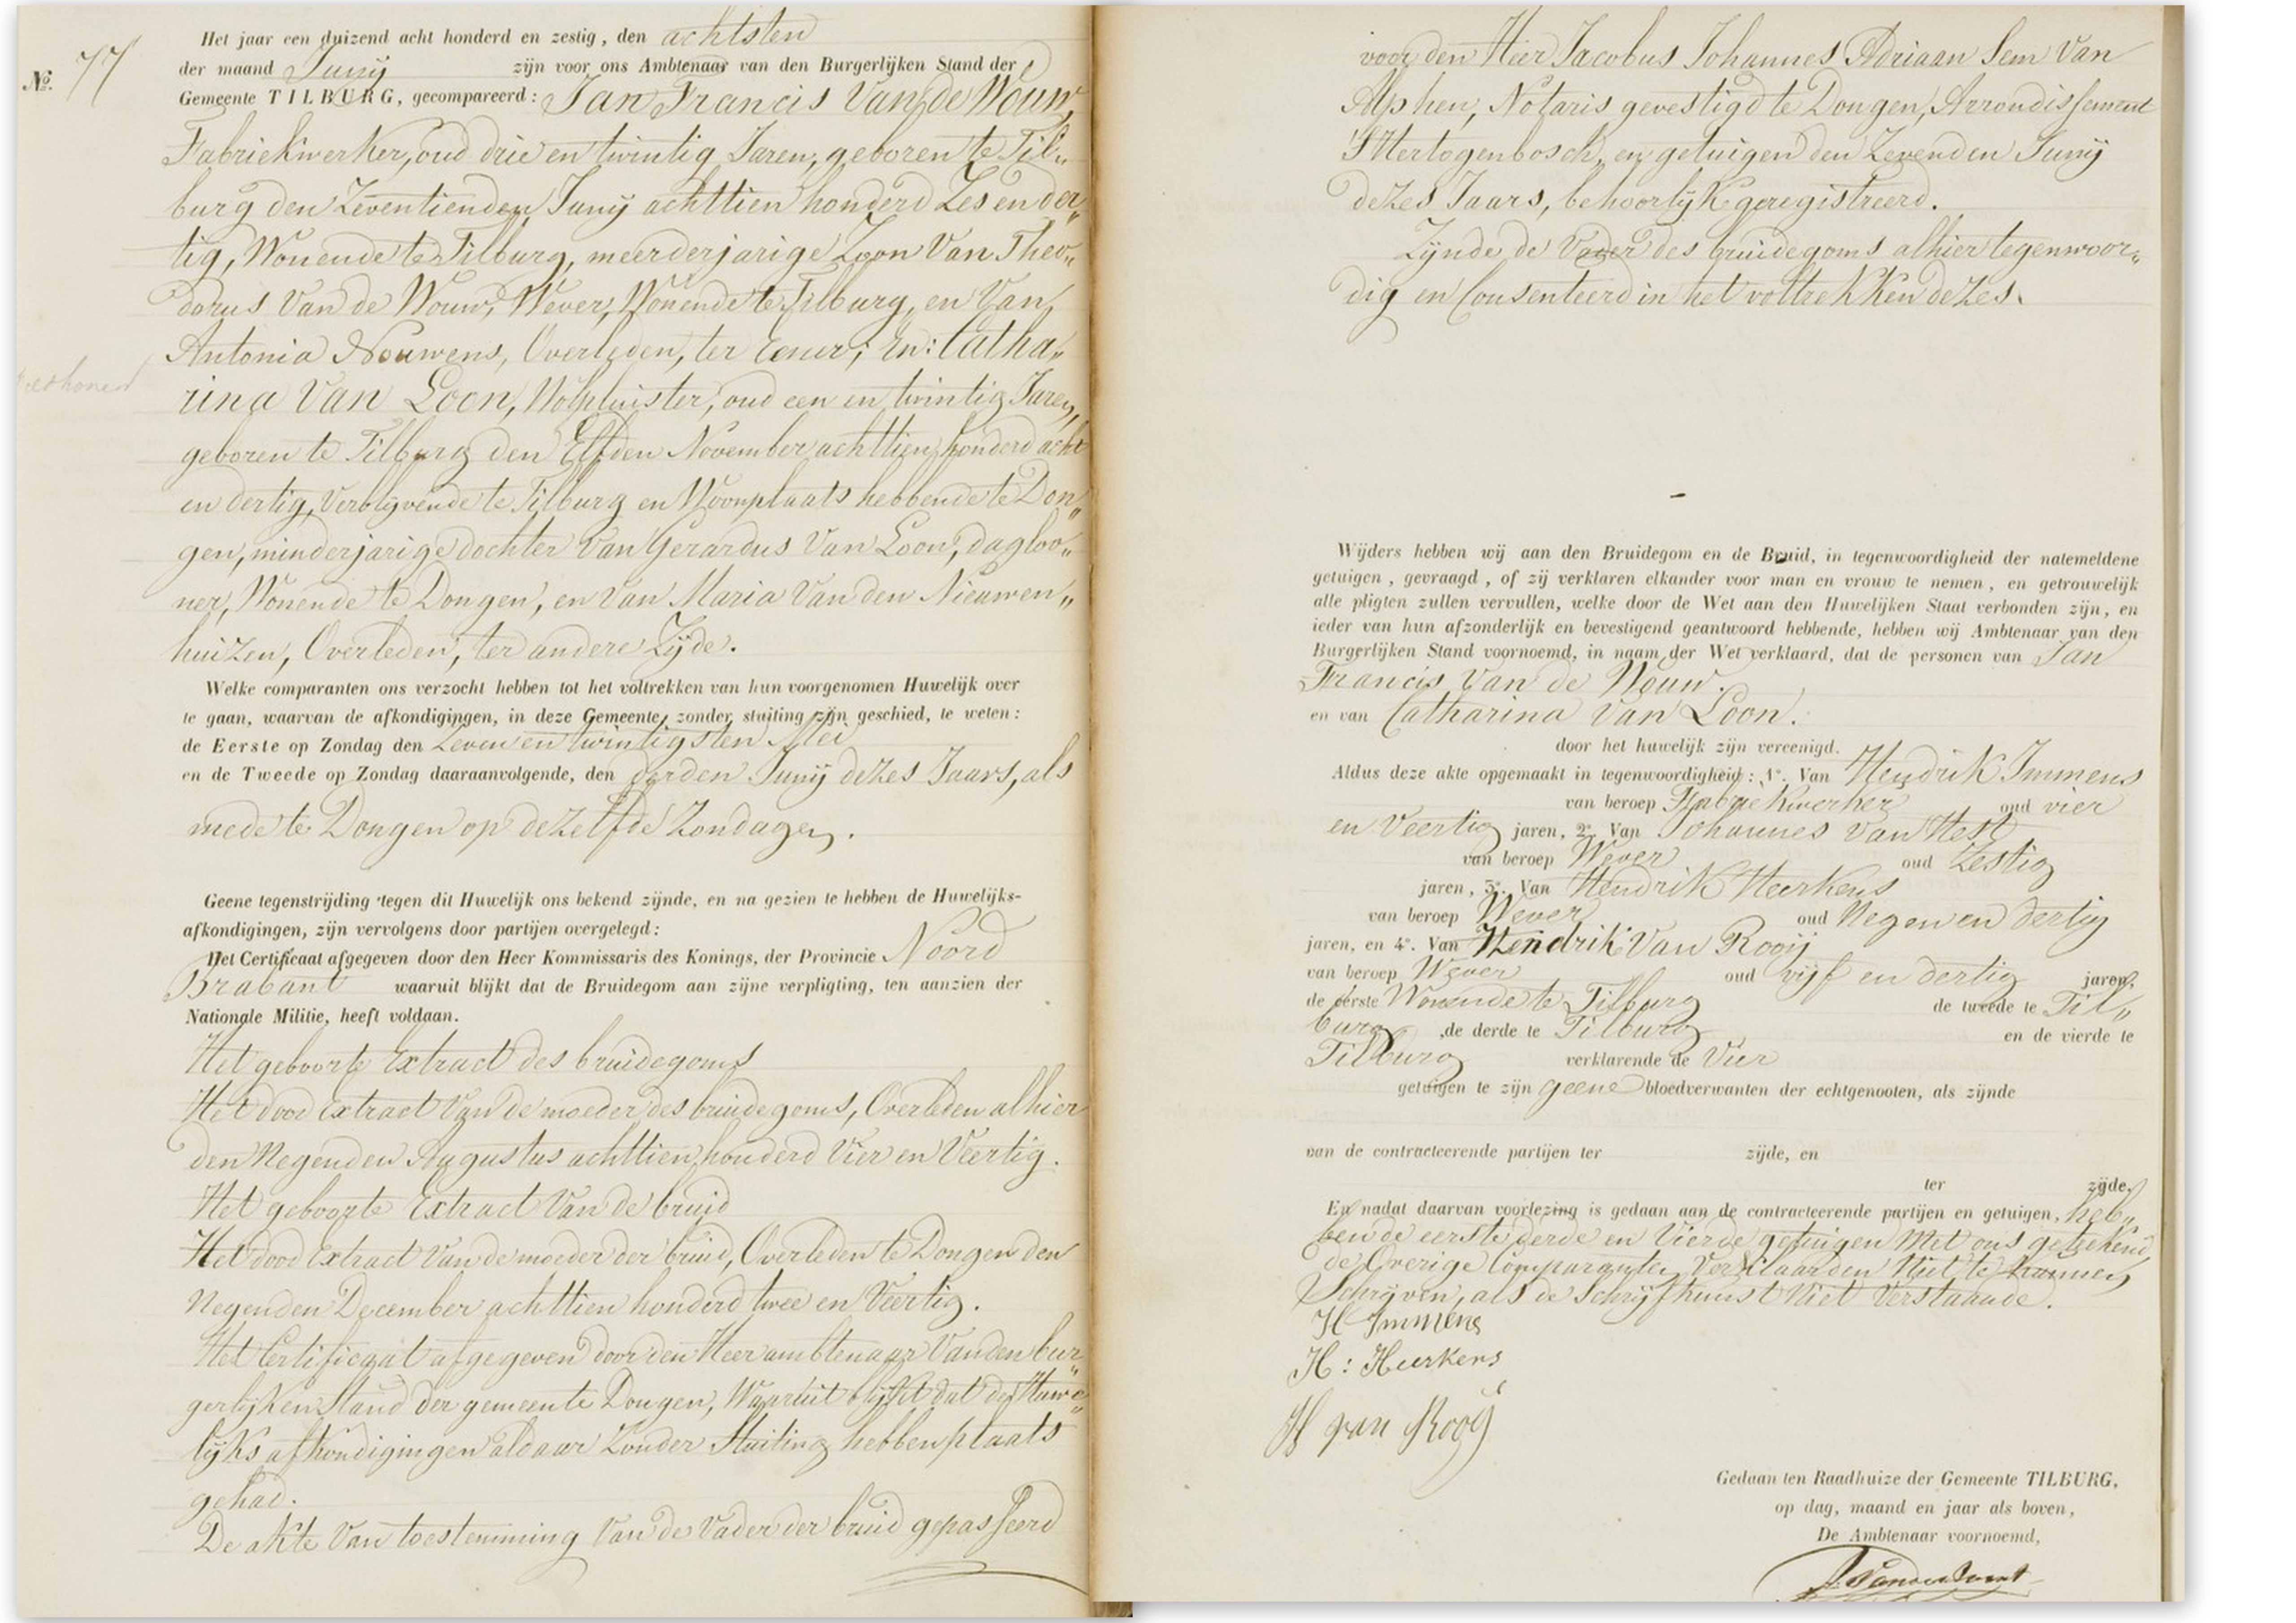 Het jaar een duizend acht honderd en zestig, den achtsten
No. 77
der maand Junij zijn voor ons Ambtenaar van den Burgerlijken Stand der
Gemeente TILBURG, gecompareerd: Jan Francis Van de Wouw,
Fabriekwerker, oud drie en twintig Jaren, geboren te Til„
burg den Zeventienden Junij achttien honderd Zes en der„
tig, Wonende te Tilburg, meerderjarige Zoon Van Theo„
dorus Van de Wouw, Wever, Wonende te Tilburg, en Van
Antonia Nouwens, Overleden, ter eener; En: Catha„
rina Van Loon, Wolpluister, oud een en twintig Jaren,
geboren te Tilburg den Elfden November achttien honderd acht
en dertig, Verblyvende te Tilburg en Woonplaats hebbende te Don„
gen, minderjarige dochter Van Gerardus Van Loon, dagloo„
ner, Wonende te Dongen, en Van Maria Van den Nieuwen„
huizen, Overleden, ter andere Zyde.
Welke comparanten ons verzocht hebben tot het voltrekken van hun voorgenomen Huwelijk over
te gaan, waarvan de afkondigingen, in deze Gemeente, zonder stuiting zijn geschied, te weten:
de Eerste op Zondag den Zeven en twintigsten Mei
en de Tweede op Zondag daaraanvolgende, den derden Junij dezes Jaars, als
mede te Dongen op dezelfde Zondagen.
Geene tegenstrijding tegen dit Huwelijk ons bekend zijnde, en na gezien te hebben de Huwelijks-
afkondigingen, zijn vervolgens door partijen overgelegd:
Het Certificaat afgegeven door den Heer Kommissaris des Konings, der Provincie Noord
Brabant waaruit blijkt dat de Bruidegom aan zijne verpligting, ten aanzien der
Nationale Militie, heeft voldaan.
Het geboorte Extract des bruidegoms
Het dood Extract Van de moeder des bruidegoms, Overleden alhier
den Negenden Augustus achttien honderd Vier en Veertig.
Het geboorte Extract Van de bruid
Het dood Extract Van de moeder der bruid, Overleden te Dongen den
Negenden December achttien honderd twee en Veertig.
Het Certificaat afgegeven door den Heer ambtenaar Van den bur„
gerlyken Stand der gemeente Dongen, Waaruit blykt dat de Huwe„
lyks afkondigingen aldaar Zonder Stuiting hebben plaats
gehad.
De akte Van toestemming Van de Vader der bruid gepasseerd
voor den Heer Jacobus Johannes Adriaan Sem Van
Alphen, Notaris gevestigd te Dongen, Arrondissement
'SHertogenbosch, en getuigen den Zevenden Junij
dezes Jaars, behoorlyk geregistreerd.
Zynde de Vader des bruidegoms alhier tegenwoor„
dig en Consenteerd in het voltrekken dezes.
Wijders hebben wij aan den Bruidegom en de Bruid, in tegenwoordigheid der natemeldene
getuigen, gevraagd, of zij verklaren elkander voor man en vrouw te nemen, en getrouwelijk
alle pligten zullen vervullen, welke door de Wet aan den Huwelijken Staat verbonden zijn, en
ieder van hun afzonderlijk en bevestigend geantwoord hebbende, hebben wij Ambtenaar van den
Burgerlijken Stand voornoemd, in naam der Wet verklaard, dat de personen van Jan
Francis Van de Wouw.
en van Catharina Van Loon.
door het huwelijk zijn vereenigd.
Aldus deze akte opgemaakt in tegenwoordigheid: 1e. Van Hendrik Immens
van beroep Fabriekwerker oud vier
en Veertig jaren, 2e. Van Johannes Van Hest
van beroep Wever oud Zestig
jaren, 3e. Van Hendrik Heerkens
van beroep Wever oud Negen en dertig
jaren, en 4e. Van Hendrik Van Rooij
van beroep Wever oud vijf en dertig jaren,
de eerste Wonende te Tilburg de tweede te Til„
burg de derde te Tilburg en de vierde te
Tilburg verklarende de Vier
getuigen te zijn geene bloedverwanten der echtgenooten, als zijnde
van de contracteerende partijen ter zijde, en
ter zijde,
En nadat daarvan voorlezing is gedaan aan de contracteerende partijen en getuigen, heb„
bende eerste derde en Vierde getuigen Met ons geteekend,
de Overige Comparanten Verklaarden Niet te kunnen
Schryven, als de Schryfkunst Niet Verstaande.
H Immens
H: Heerkens
H van Rooij
Gedaan ten Raadhuize der Gemeente TILBURG,
op dag, maand en jaar als boven,
De Ambtenaar voornoemd,